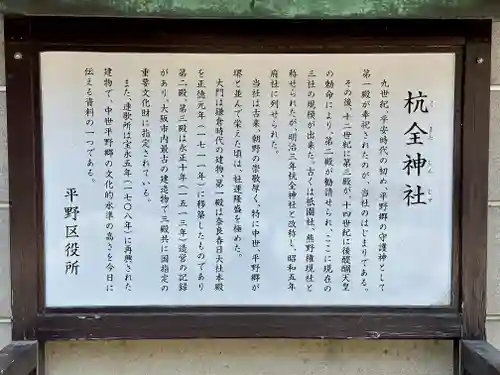 杭全神社
くまた じんじゃ
九世紀、平安時代の初め、平野郷の守護神として
第一殿が奉祝されたのが、当社のはじまりである。
その後、十二世紀に第三殿が、十四世紀に後醍醐天皇
の勅命により、第二殿が勧請せられ、ここに現在の
三社の規模が出来た。古くは祇園社、熊野権現社と
称せられたが、明治三年杭全神社と改称し、昭和五年
府社に列せられた。
当社は古来、朝野の崇敬厚く、特に中世、平野郷が
堺と並んで栄えた頃は、社運隆盛を極めた。
大門は鎌倉時代の建物、第一殿は奈良春日大社本殿
を正徳元年（一七一一年）に移築したものであり
第二殿、第三殿は永正十年（一五一三年）造営の記録
があり、大阪市内最古の建造物で三殿共に国指定の
重要文化財に指定されている。
また、連歌所は宝永五年（一七〇八年）に再興された
建物で、中世平野郷の文化的水準の高さを今日に
伝える資料の一つである。
平野区役所